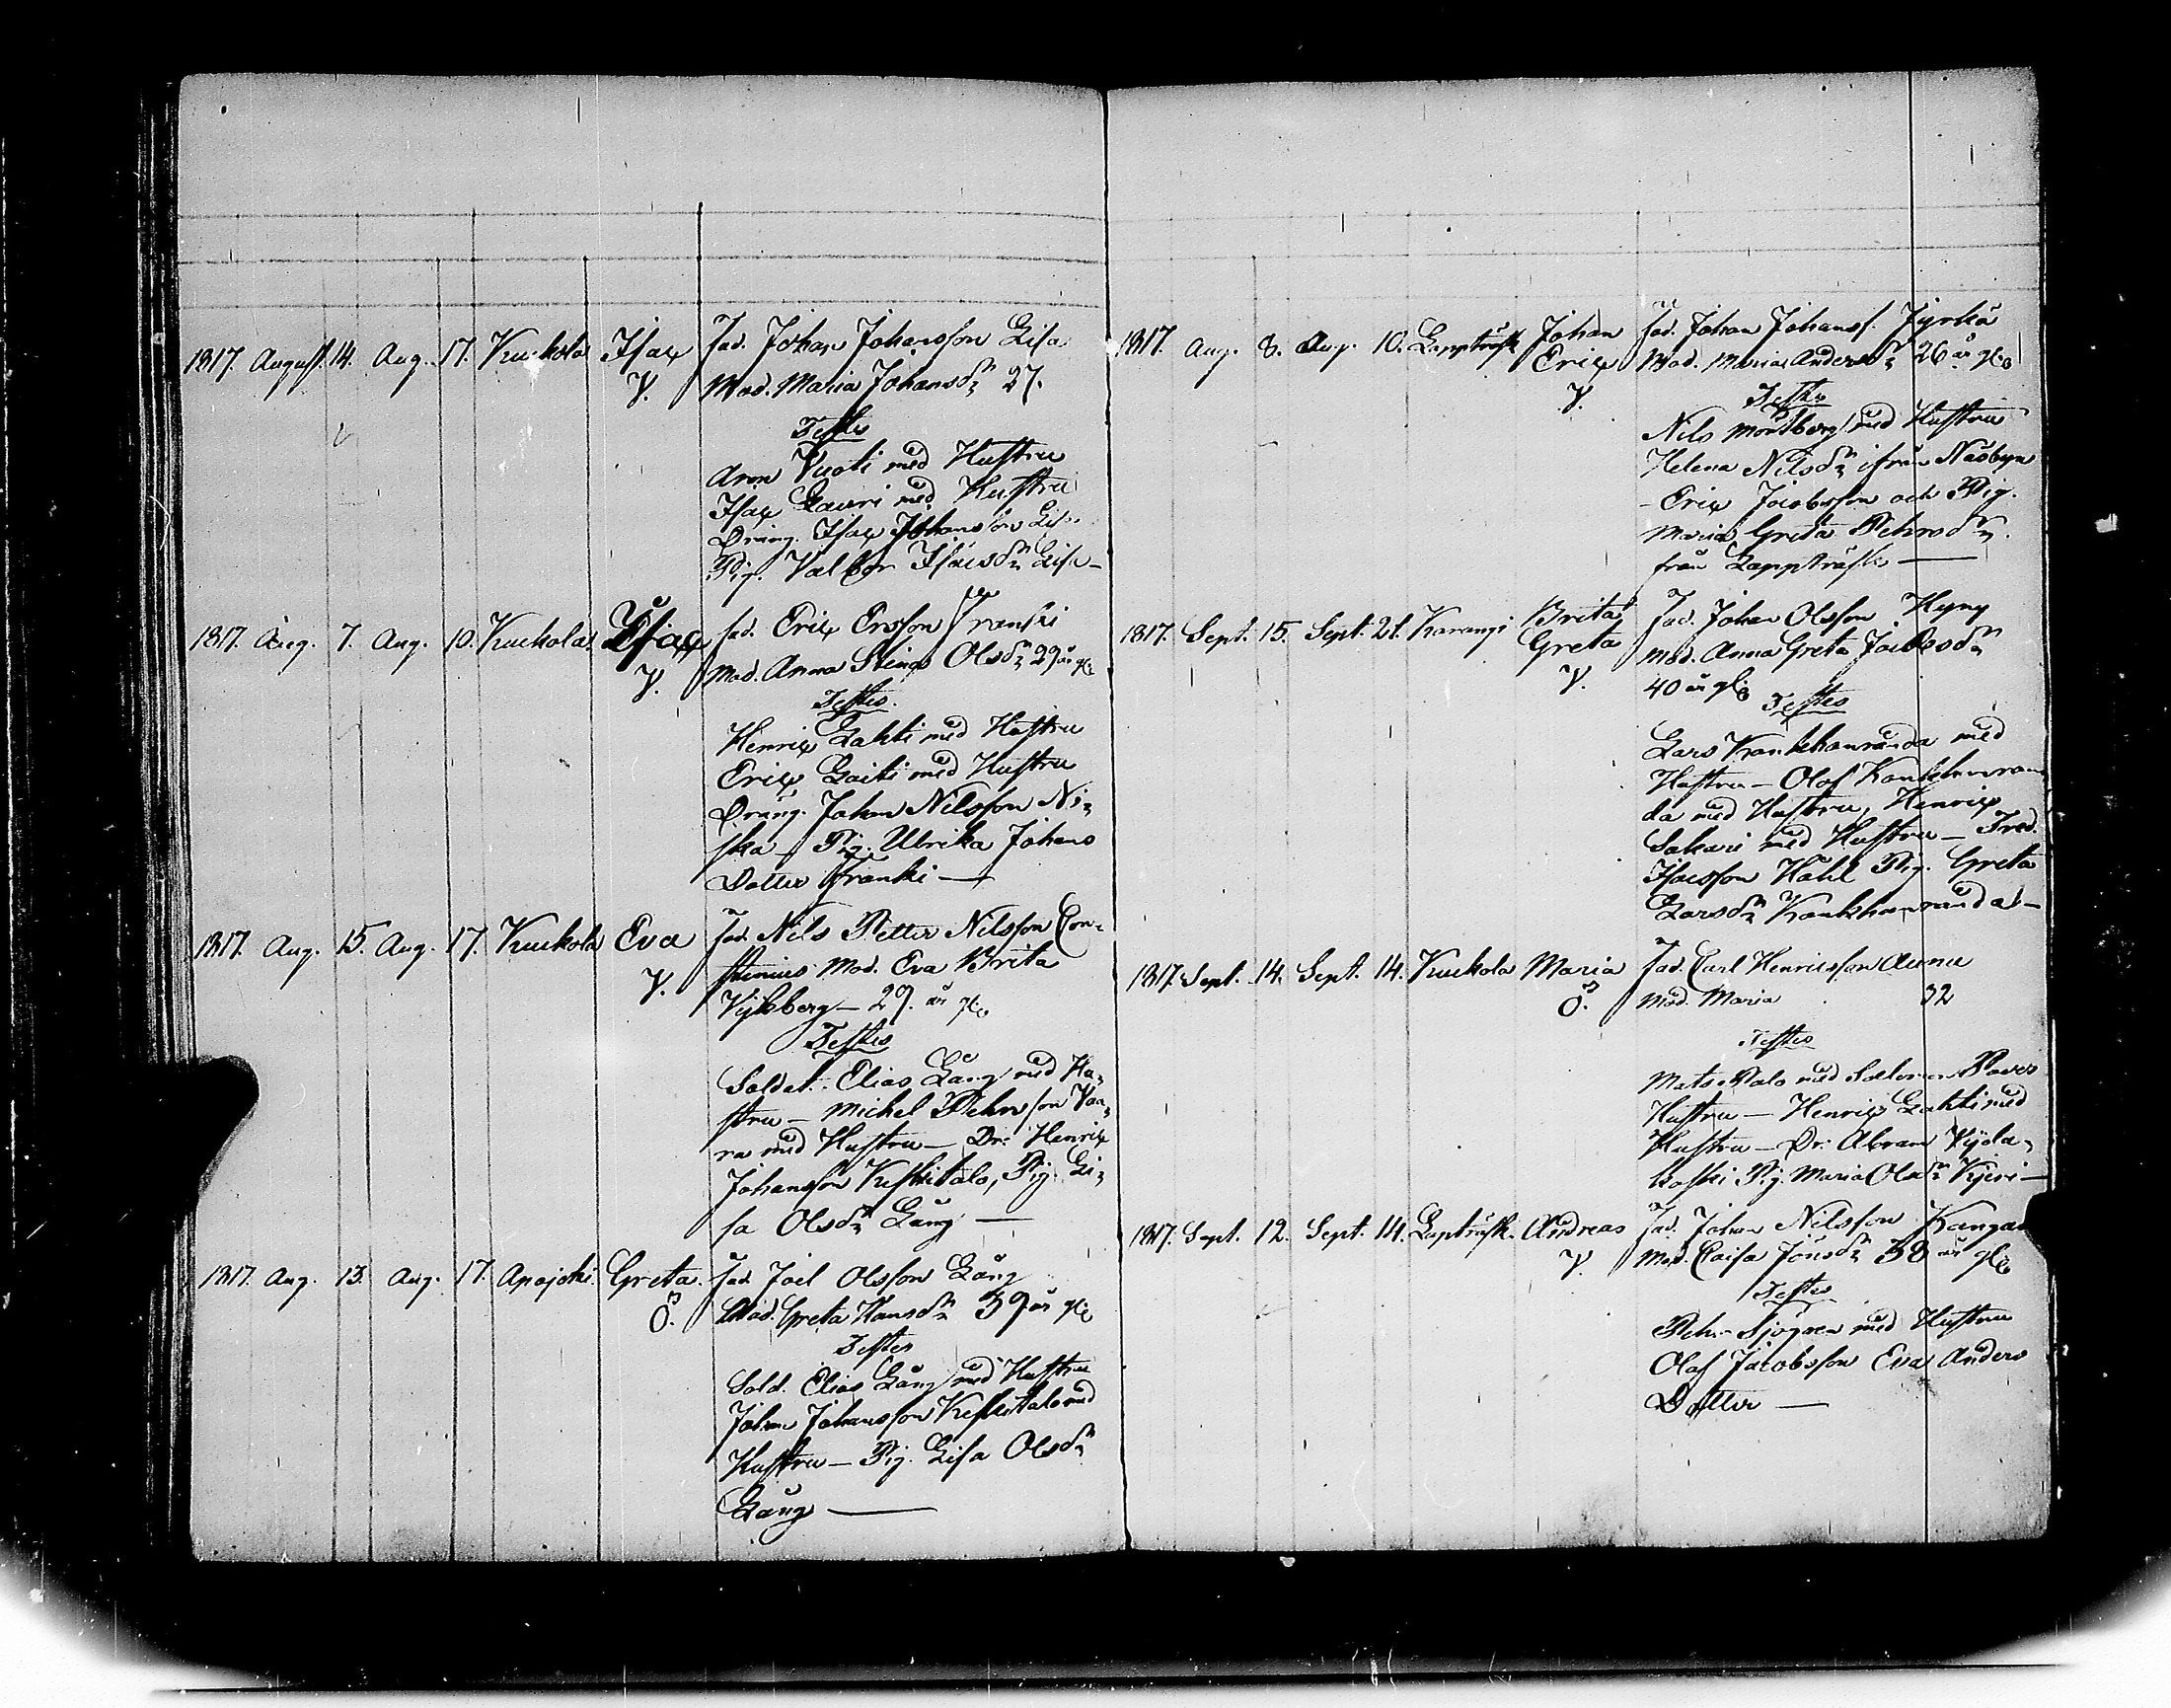 1817. August. 14. Aug. 17. Kuckola Isac Fad. Johan Johansson Lisa
V. Mod. Maria Johansdr 27.
Testes
Aron Vuoti med Hustru
Isac Lauri med Hustru
Dräng. Isac Johansson Lis
Pig. Valbor Isacsdr Lisa –
1817. Aug. 7. Aug. 10. Kuckola Isac Fad. Eric Ersson Franki
V. Mod. Anna Stina Olsdr 29 år gl
Testes.
Henric Lahti med Hustru
Eric Laiti med Hustru
Dräng. Johan Nilsson Ni-
ska – Pig. Ulrika Johans
Dotter Franki —
1817. Aug. 15. Aug. 17. Kuckola Eva Fad. Nils Petter Nilsson Con-
stenius Mod. Eva Brita
V. Vijkberg – 29. år gl.
Testes
Soldat. Elias Lång med Hu-
stru – Michel Pehrsson Vaa-
ra med Hustru – Dr: Henric
Johansson Keskitalo, Pig. Li-
sa Olsdr Lång —
1817. Aug. 13. Aug. 17. Apajoki. Greta. Fad. Joel Olsson Lång
Ö. Mod. Greta Hansdr 39 år gl
Testes
Sold. Elias Lång med Hustru
Johan Johansson Keskitalo med
Hustru – Pig. Lisa Olsdr
Lång —
1817. Aug. 8. Aug. 10. Lappträsk Johan Fad. Johan Johanss. Jyrkä
Eric Mod. Maria Andersdr 26 år gl
V. Testes
Nils Mörtberg med Hustru
Helena Nilsdr ifrån Näsbyn
– Eric Jacobsson och Pig.
Maria Greta Pehrsdr.
från Lappträsk —
1817. Sept. 15. Sept. 21. Karungi Brita Fad. Johan Olsson Hyny
Greta Mod. Anna Greta Jacobsdr
V. 40 år gl
Testes
Lars Kankhanranda med
Hustru – Olof Kankhanran
da med Hustru, Henric
Sakari med Hustru – Fred.
Isacsson Hähl Pig. Greta
Larsdr Kankhanranda –
1817. Sept. 14. Sept. 14. Kuckola Maria Fad. Carl Henricsson Aunu
Ö. Mod. Maria 32
Testes
Mats Palo med Salomon
Hustru – Henric Lahti med
Hustru – Dr: Abram Ylida-
koski Pig. Maria Olsdr Kyeri –
1817. Sept. 12. Sept. 14. Lapträsk. Andreas Fad. Johan Nilsson Kangas
V. Mod. Caisa Jönsdr 38 år gl
Testes
Pehr Sjögren med Hustru
Olof Jacobsson Eva Anders
Dotter —